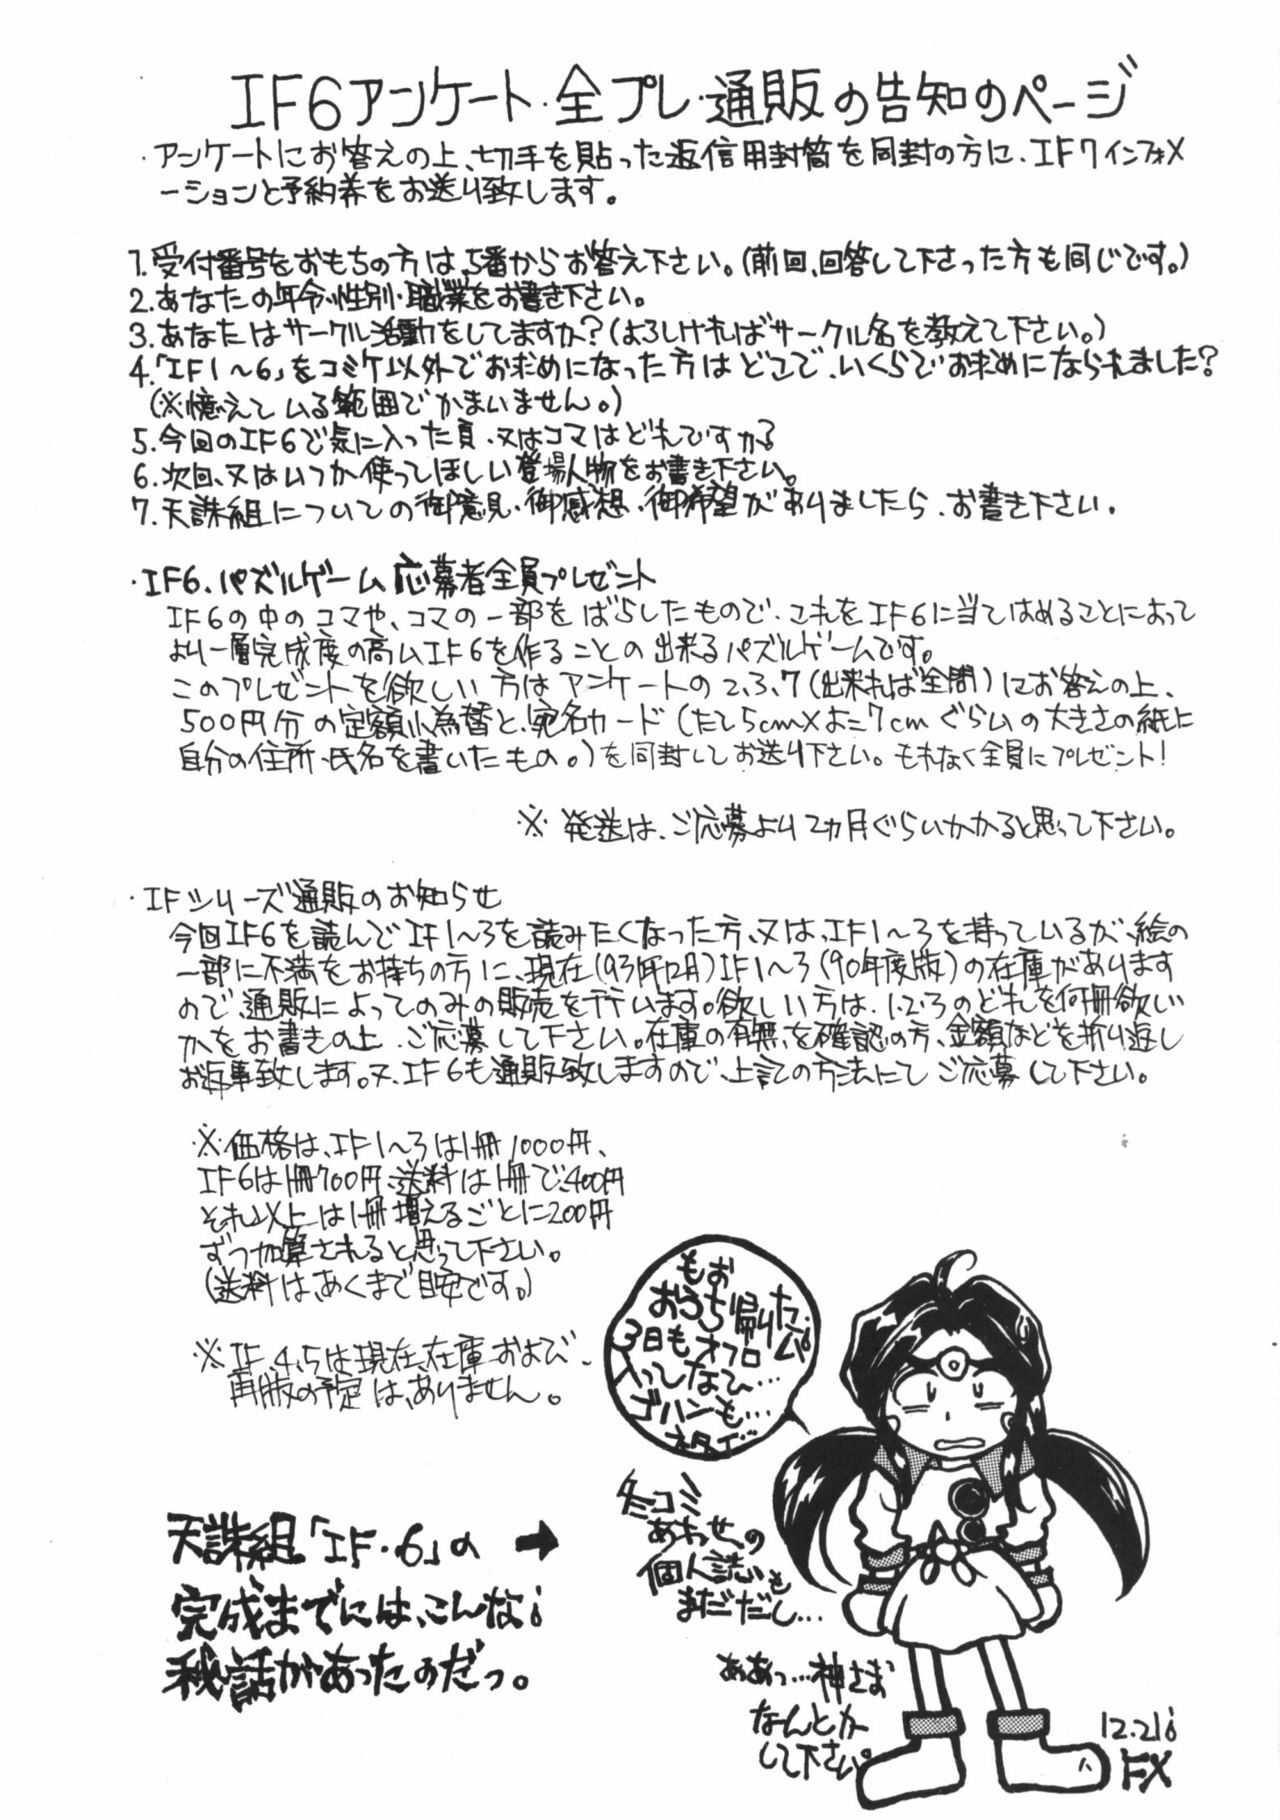 IF6アンケート・全プレ・通販の告知のページ
・アンケートにお答えの上、切手を貼った返信用封筒を同封の方に、IF7インフォメ
ーションと予約券をお送り致します。
1.受付番号をおもちの方は、5番からお答え下さい。(前回、回答して下さった方も同じです。)
2.あなたの年令・性別・職業をお書き下さい。
3.あなたはサークル活動をしてますか?(よろしければサークル名を教えて下さい。)
4.「IF1〜6」をコミケ以外でお求めになった方はどこで、いくらでお求めになられました?
(※憶えている範囲でかまいません。)
5.今回のIF6で気に入った頁、又はコマはどれですか?
6.次回、又はいつか使ってほしい登場人物をお書き下さい。
7.天誅組についての御意見・御感想・御希望がありましたら、お書き下さい。
・IF6.パズルゲーム応募者全員プレゼント
IF6の中のコマや、コマの一部をばらしたもので、これをIF6に当てはめることによって
より一層完成度の高いIF6を作ることの出来るパズルゲームです。
このプレゼントを欲しい方はアンケートの2、3、7(出来れば全問)にお答えの上、
500円分の定額小為替と、宛名カード(たて5cm×よこ7cmぐらいの大きさの紙に
自分の住所・氏名を書いたもの。)を同封してお送り下さい。もれなく全員にプレゼント!
※発送は、ご応募より2ヵ月ぐらいかかると思って下さい。
・IFシリーズ通販のお知らせ
今回IF6を読んでIF1〜3を読みたくなった方、又は、IF1〜3を持っているが、絵の
一部に不満をお持ちの方に、現在(93年12月)IF1〜3(90年度版)の在庫があります
ので、通販によってのみの販売を行います。欲しい方は、1・2・3のどれを何冊欲しい
かをお書きの上、ご応募して下さい。在庫の有無を確認の方、金額などを折り返し
お返事致します。又、IF6も通販致しますので、上記の方法にてご応募して下さい。
※価格は、IF1〜3は1冊1000円、
IF6は1冊700円、送料は1冊で、400円
それ以上は1冊増えるごとに200円
ずつ加算されると思って下さい。
(送料は、あくまで目安です。)
※IF、4、5は現在、在庫および、
再販の予定は、ありません。
もお
おうち帰りたい
3日もオフロ
入ってないひ…
ゴハンも…
冬コミ
あわせの
個人誌も
まだだし…
ああっ…神さま
なんとか
して下さい。
天誅組「IF・6」の→
完成までには、こんな
秘話があったのだっ。
12.21
FX